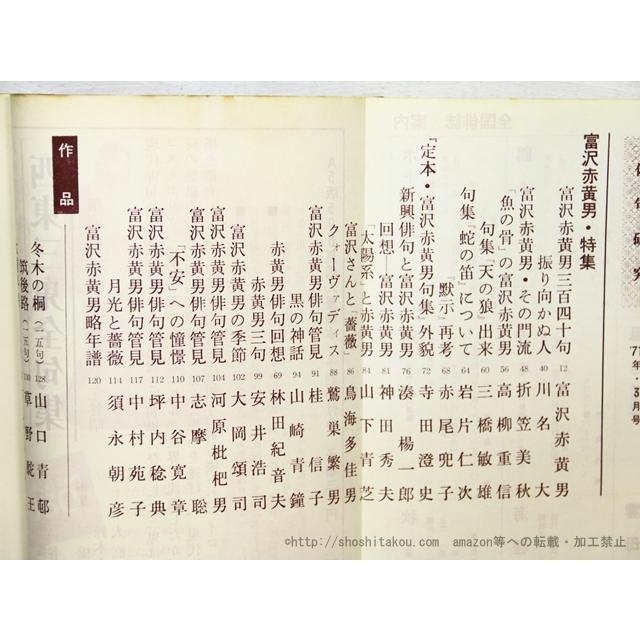 俳句研究
'71年・3月号
富沢赤黄男・特集
富沢赤黄男三百四十句 12 富沢赤黄男
振り向かぬ人 40 川名大
富沢赤黄男・その門流 48 折笠美秋
「魚の骨」の富沢赤黄男 56 高柳重信
句集『天の狼』出来 60 三橋敏雄
句集『蛇の笛』について 64 岩片仁次
『黙示』再考 68 赤尾兜子
『定本・富沢赤黄男句集』外貌 72 寺田澄史
新興俳句と富沢赤黄男 76 湊楊一郎
回想―富沢赤黄男 81 神田秀夫
「太陽系」と赤黄男 84 山下青芝
富沢さんと「薔薇」 86 鳥海多佳男
クォーヴァディス 88 鷲巣繁男
富沢赤黄男俳句管見 91 桂信子
黒の神話 94 山崎青鐘
赤黄男俳句回想 69 林田紀音夫
赤黄男三句 99 安井浩司
富沢赤黄男の季節 102 大岡頌司
富沢赤黄男俳句管見 104 河原枇杷男
富沢赤黄男俳句管見 107 志摩聡
「不安」への憧憬 110 中谷寛章
富沢赤黄男俳句管見 112 坪内稔典
富沢赤黄男俳句管見 117 中村苑子
月光と薔薇 114 須永朝彦
富沢赤黄男略年譜 120
作品
冬木の桐(二五句) 128 山口青邨
筑後路(二五句) 130 草野駝王
全国俳誌案内
©http://shoshitakou.com amazon等への転載・加工禁止